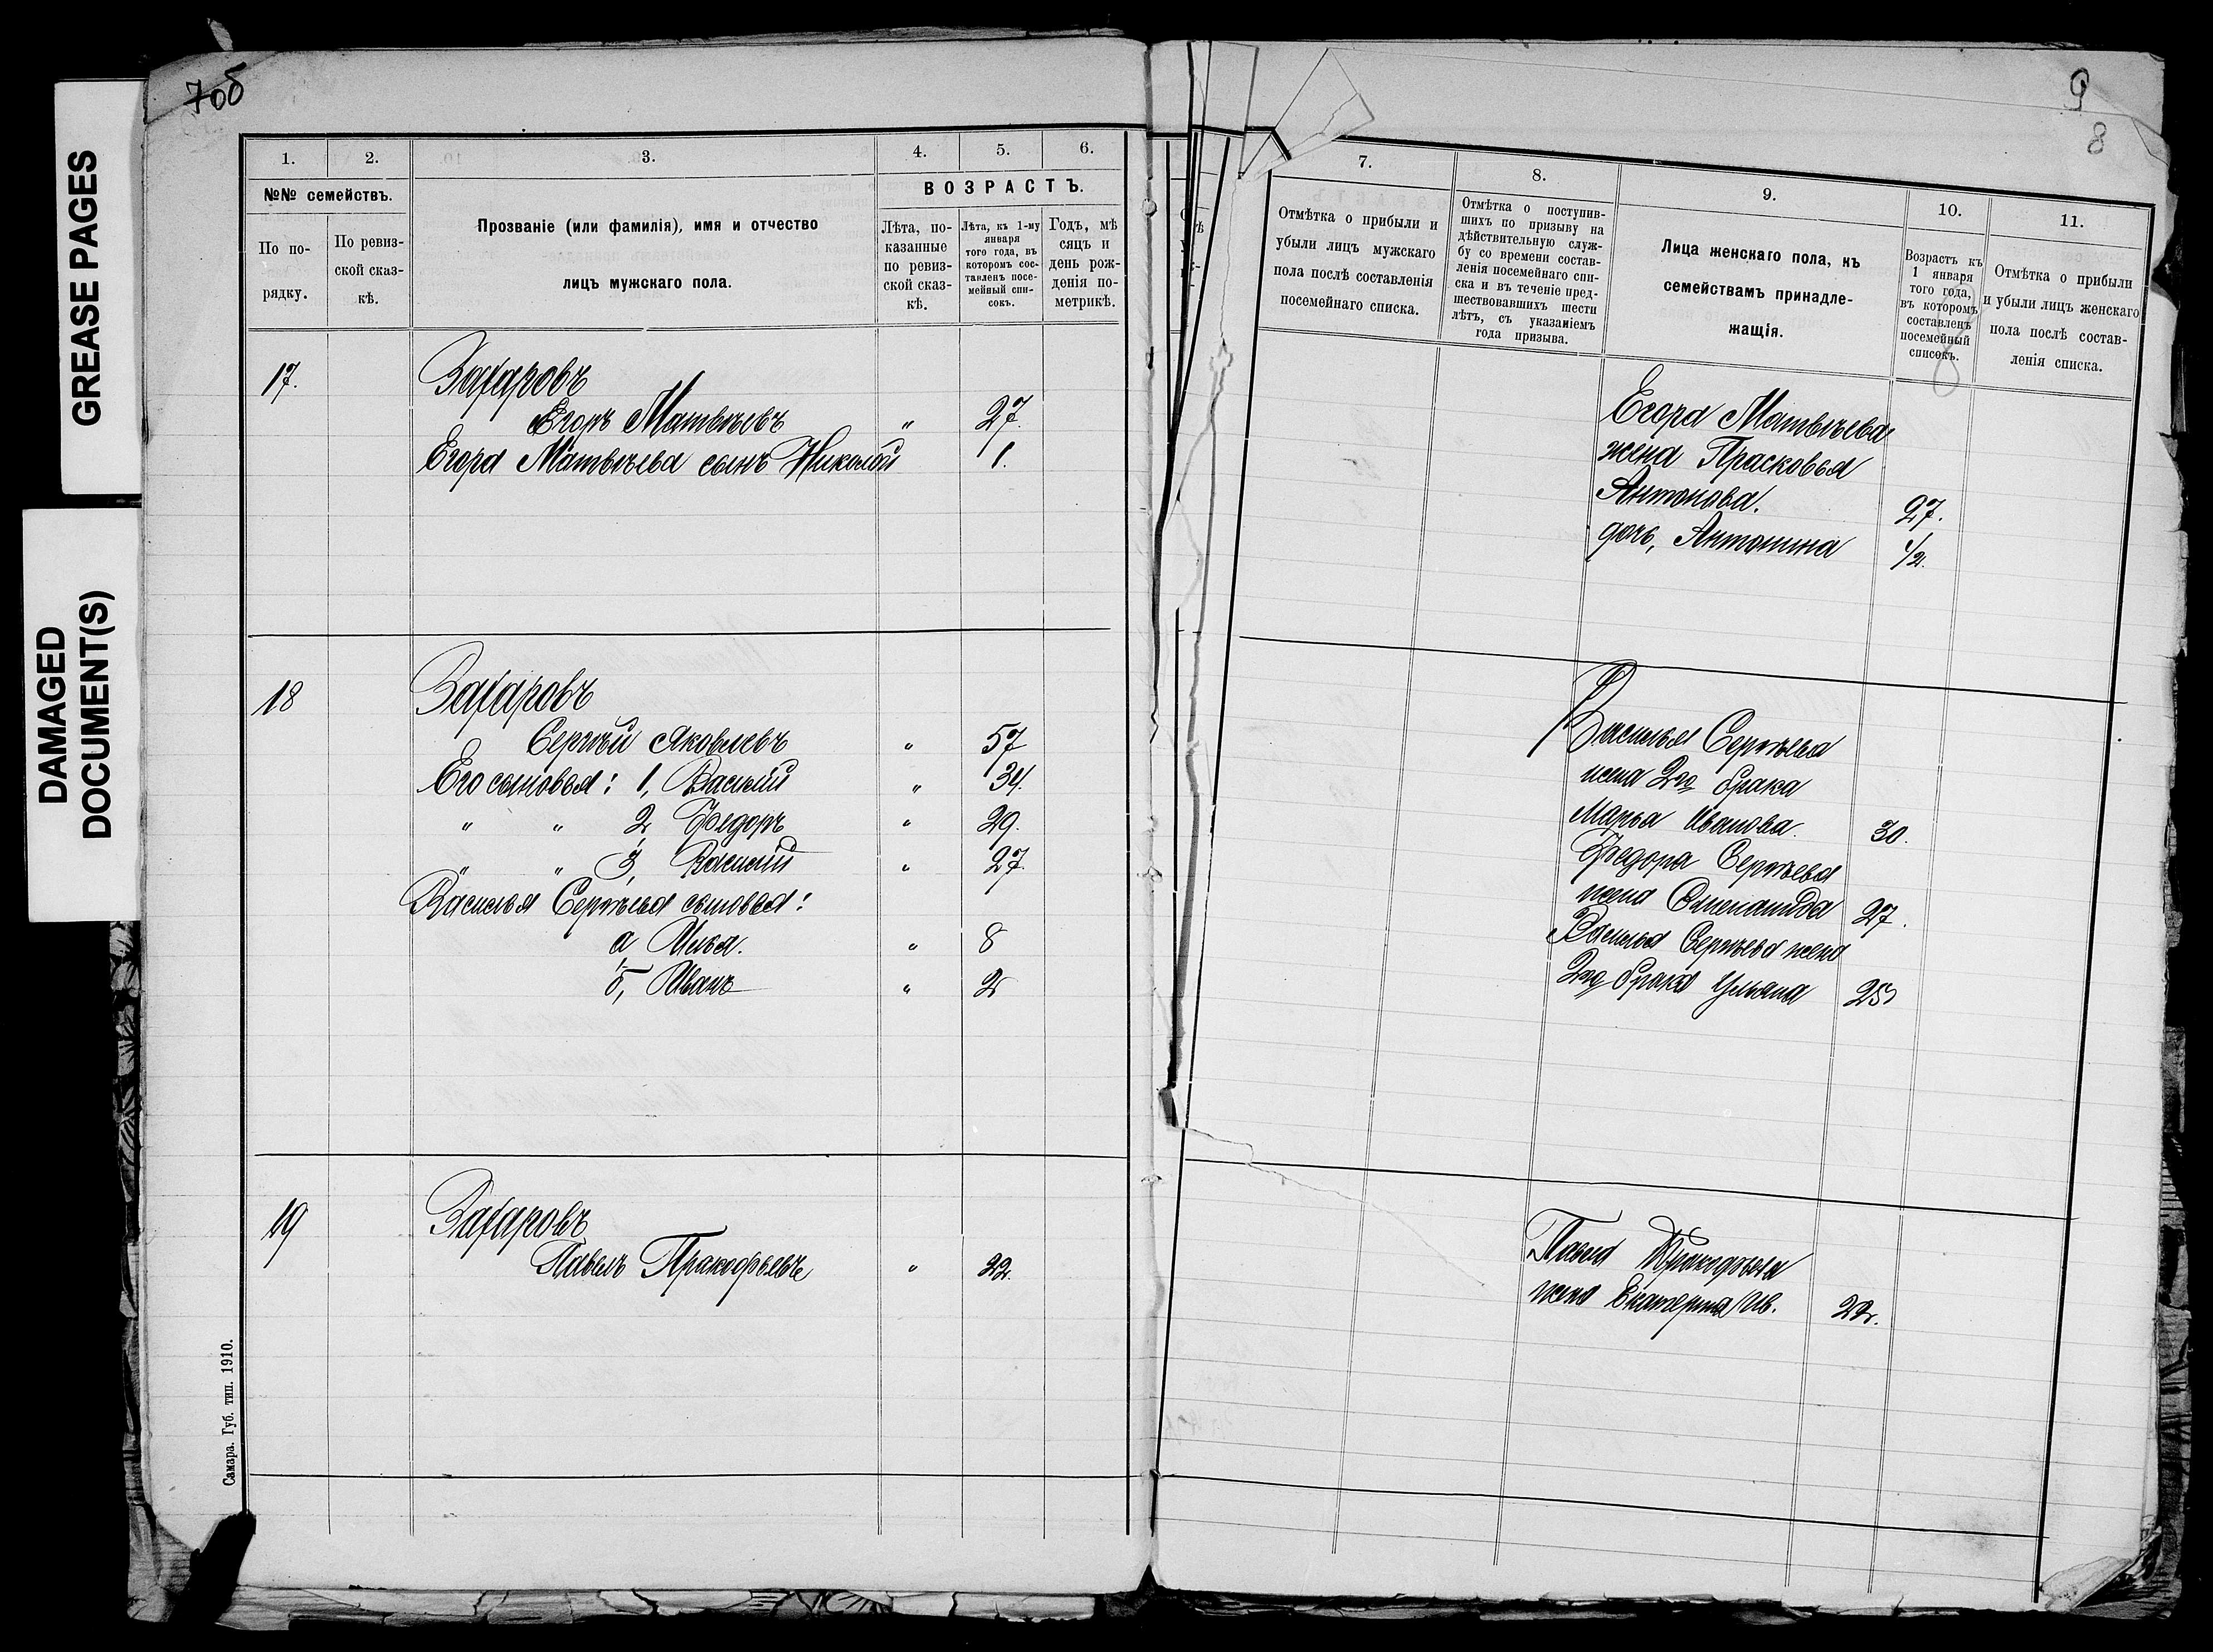 GREASE PAGES
DAMAGED
DOCUMENT(S)
7об
1.
2.
3.
4.
5.
6.
№№ семействъ.
По по-
рядку.
По ревиз-
ской сказ-
кѣ.
Прозваніе (или фамилія), имя и отчество
лицъ мужскаго пола.
ВОЗРАСТЪ.
Лѣта, по-
казанные
по ревиз-
ской сказ-
кѣ.
Лѣта, къ 1-му
января
того года, въ
которомъ сос-
тавленъ посе-
мейный спи-
сокъ.
Годъ, мѣ
сяцъ и
день рож-
денія по-
метрикѣ.
17.
Захаровъ
Егоръ Матвѣевъ " 27.
Егора Матвѣева сынъ Николай 1.
18
Захаровъ
Сергѣй Яковлевъ " 57
Его сыновья: 1, Василій " 34.
" " 2, Федоръ " 29.
" " 3, Василій " 27.
Василья Сергѣева сыновья:
а, Илья. " 8
б, Иванъ " 2
19
Захаровъ
Павелъ Пракофьевъ " 22.
Самара. Губ. тип. 1910.
9
8
7.
8.
9.
10.
11.
Отмѣтка о прибыли и
убыли лицъ мужскаго
пола послѣ составленія
посемейнаго списка.
Отмѣтка о поступив-
шихъ по призыву на
дѣйствительную служ-
бу со времени состав-
ленія посемейнаго спи-
ска и въ теченіе пред-
шествовавшихъ шести
лѣтъ, съ указаніемъ
года призыва.
Лица женскаго пола, къ
семействамъ принадле-
жащія.
Возрастъ къ
1 января
того года,
въ которомъ
составленъ
посемейный
списокъ.
Отмѣтка о прибыли
и убыли лицъ женскаго
пола послѣ состав-
ленія списка.
Егора Матвѣева
жена Прасковья
Антонова. 27.
дочь, Антонина 1/2.
Василья Сергѣева
жена 2го брака
Марья Иванова. 30.
Федора Сергѣева
жена Степанида 27.
Василья Сергѣева жена
2го брака Ульяна 25
Павла Пракофьева
жена Екатерина Ив. 22.